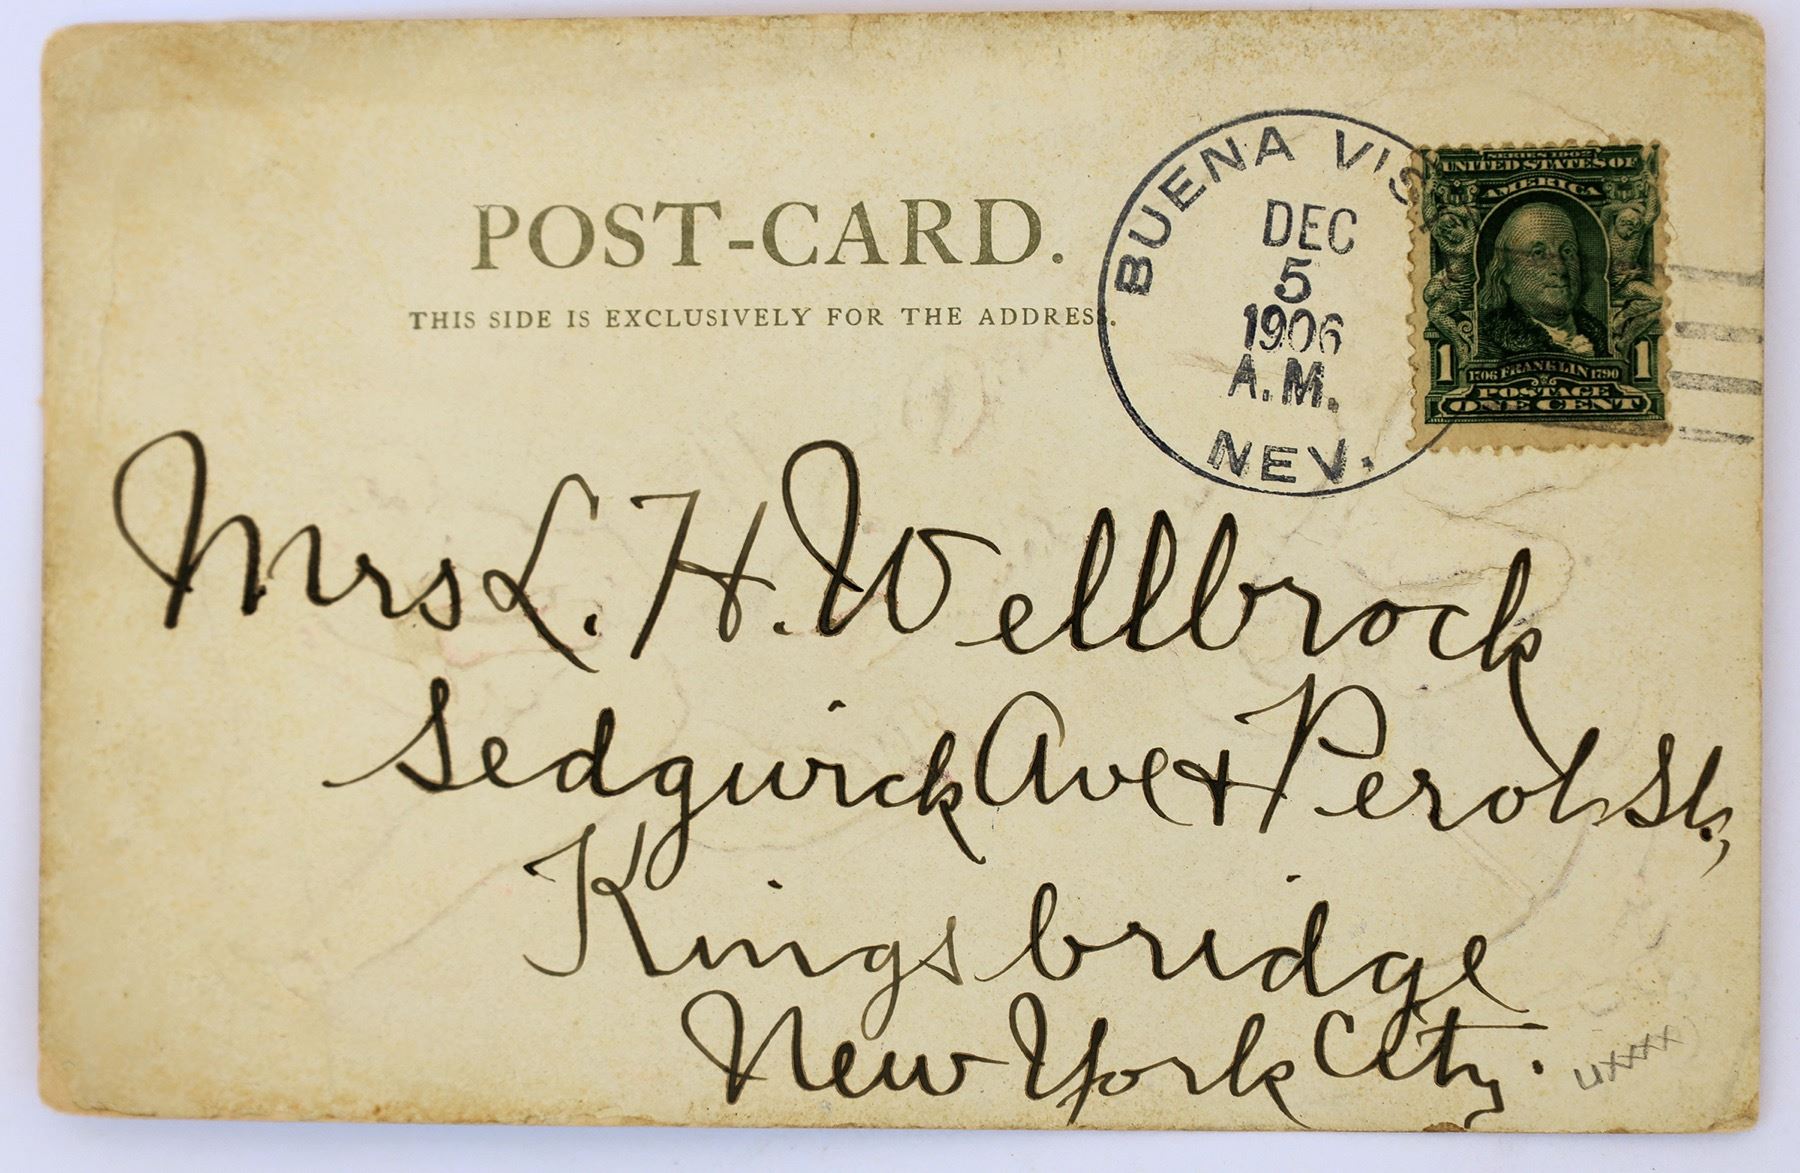 POST-CARD.
THIS SIDE IS EXCLUSIVELY FOR THE ADDRESS.
BUENA VIS
DEC
5
1906
A.M.
NEV.
SERIES 1902
UNITED STATES OF
AMERICA
1 1706 FRANKLIN 1790 1
POSTAGE
ONE CENT
Mrs L. H. Wellbrock
Sedgwick Ave & Perot St.,
Kingsbridge
New York City.